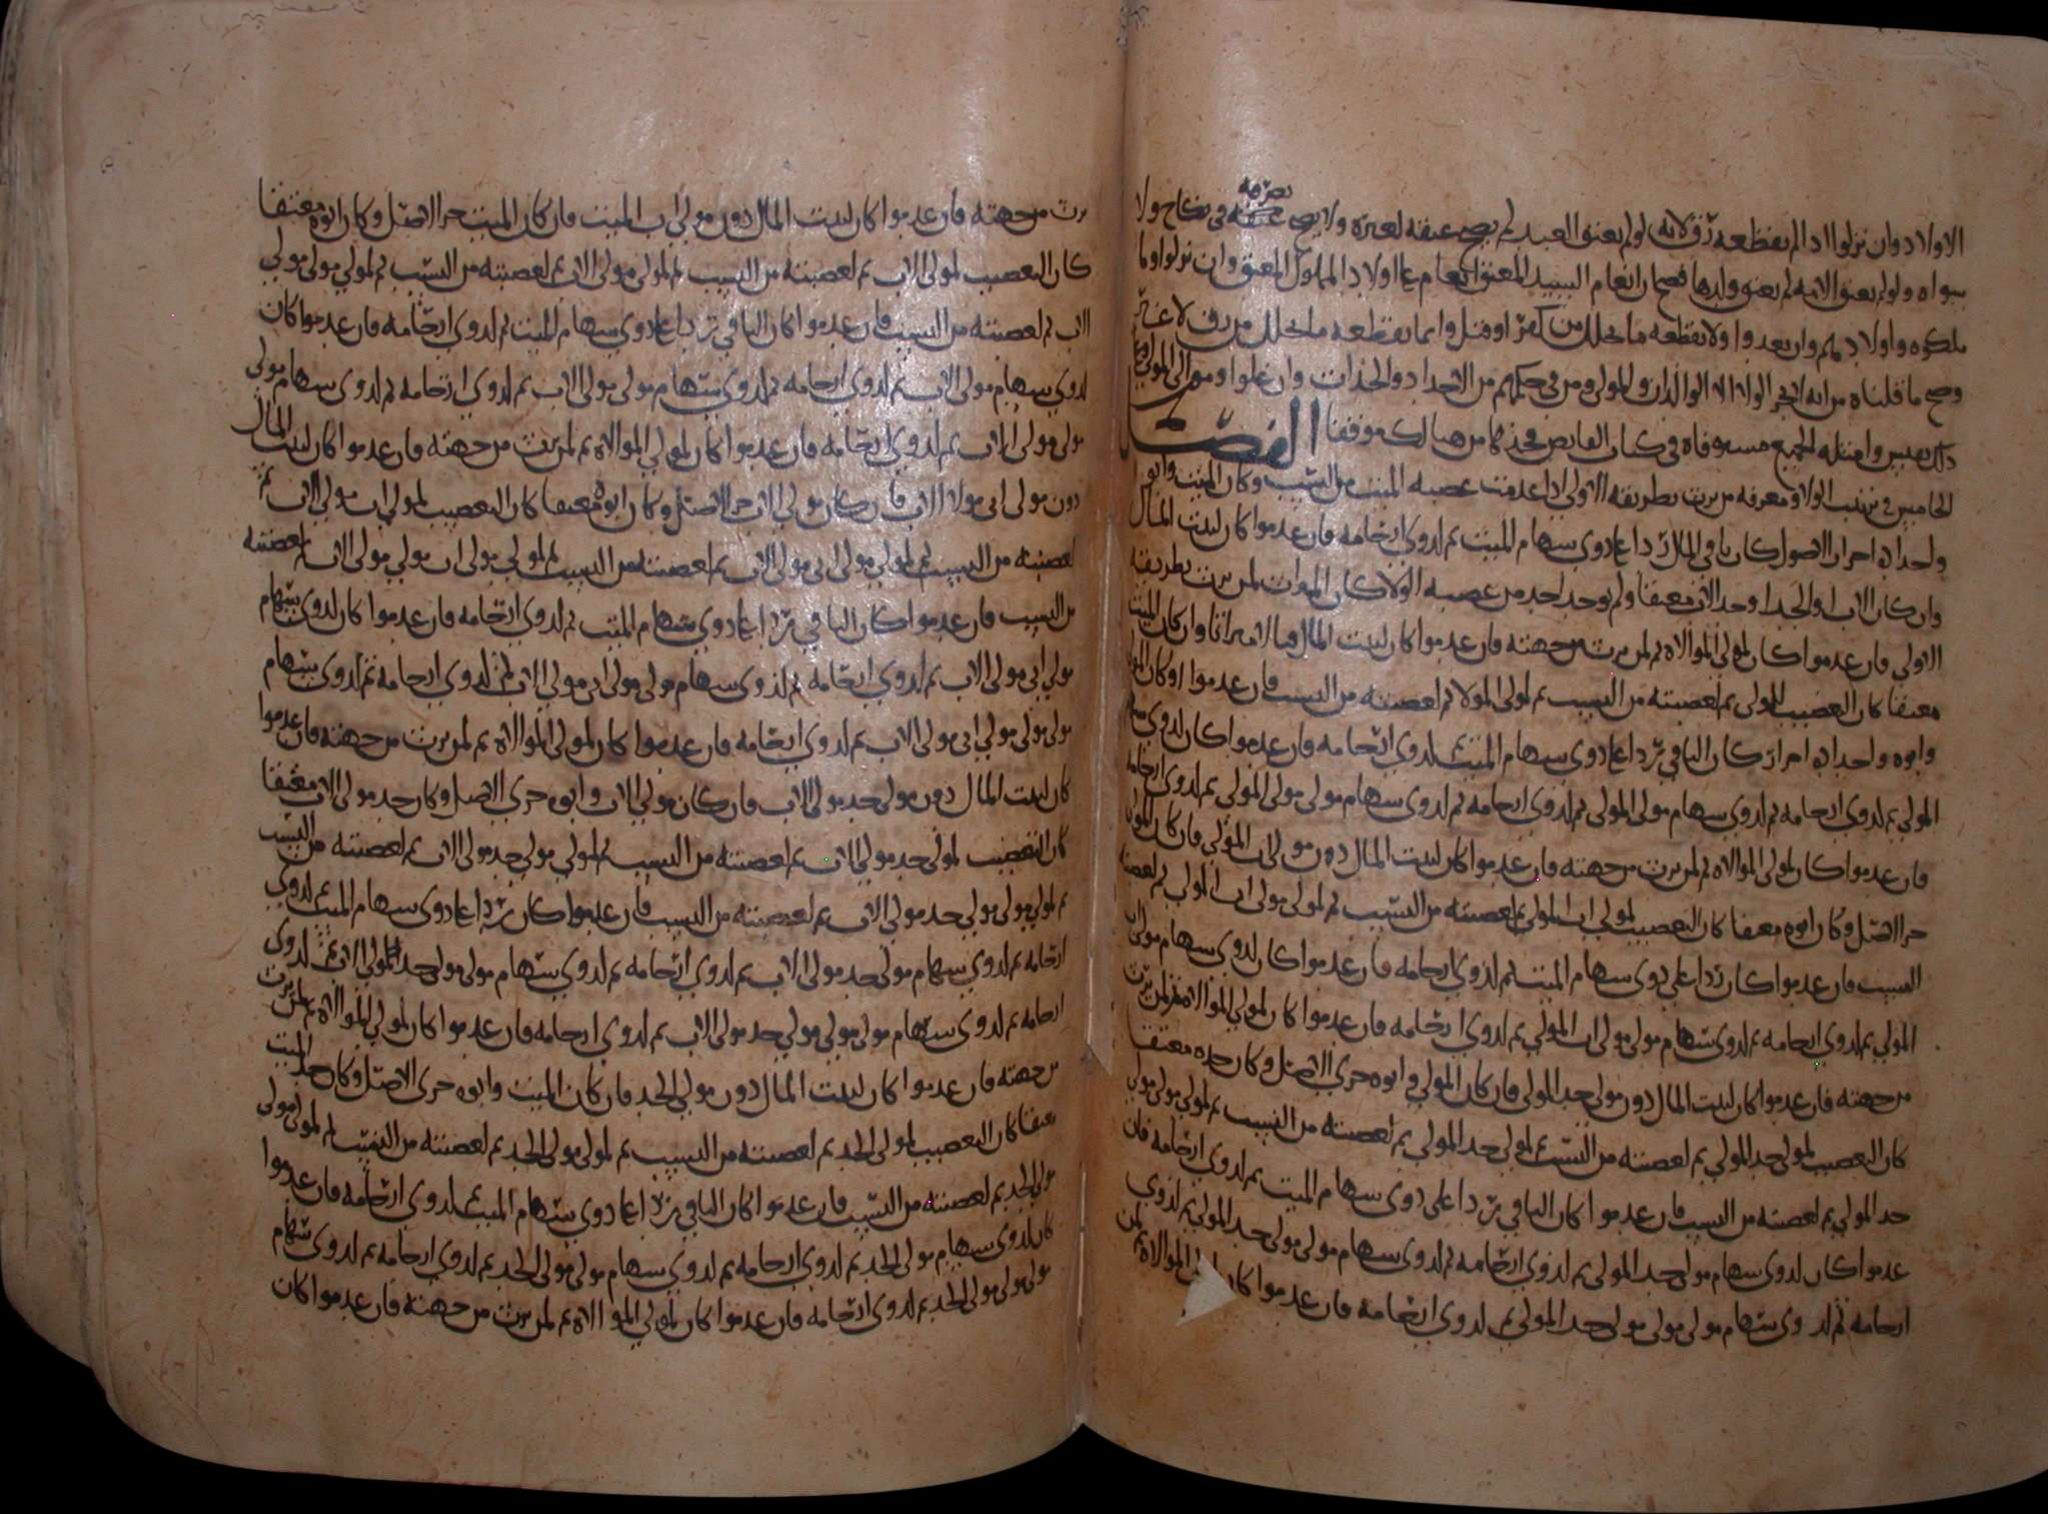 الاولاد وان نزلوا اذا لم يقطعه رق لانه لو لم يعتق العبد لم يصح عتقه لغيره ولا يصح تصرفه في نكاح ولا
سواه ولو لم يعتق الامة لم يعتق ولدها فصح ان انعام السيد المعتق انعام على اولاد المملوك المعتق وان نزلوا وما
ملكوه واولادهم وان بعدوا ولا يقطعه ما تخلل من كفر او قتل وانما يقطعه ما تخلل من رق لا غير
وصح ما قلناه من انه لا يجر الولاء الا الوالدان والمولى ومن في حكمهم من الاجداد والجدات وان علوا ومولى المولى وعلى
ذلك فقس وامثلة الجميع مستوفاة في كتاب الفايض فخذها من هنالك موفقا الفصل
الخامس في ترتيب الولاء ومعرفة من يرث بطريقه الاولى اذا عدمت عصبة الميت من النسب وكان الميت وابوه
واجداده احرار الاصول كان باقي المال ردا على ذوي سهام الميت ثم لذوي ارحامه فان عدموا كان لبيت المال
وان كان الاب او الجد او احد الاب معتقا ولم يوجد احد من عصبة الولاء كان الميراث لمن يرث بطريقته
الاولى فان عدموا كان لمولى الموالاة ثم لمن يرث من جهته فان عدموا كان لبيت المال فيا لا ميراثا وان كان الميت
معتقا كان التعصيب للمولى ثم لعصبته من النسب ثم لمولى المولى ثم لعصبته من النسب فان عدموا او كان المولى
وابوه واجداده احرار كان الباقي ردا على ذوي سهام الميت ثم لذوي ارحامه فان عدموا كان لذوي سهام
المولى ثم لذوي ارحامه ثم لذوي سهام مولى المولى ثم لذوي ارحامه ثم لذوي سهام مولى مولى المولى ثم لذوي ارحامه
فان عدموا كان لمولى الموالاة ثم لمن يرث من جهته فان عدموا كان لبيت المال دون مولى اب المولى فان كان المولى
حر الاصل وكان ابوه معتقا كان التعصيب لمولى اب المولى ثم لعصبته من النسب ثم لمولى مولى اب المولى ثم لعصبته
النسب فان عدموا كان ردا على ذوي سهام الميت ثم لذوي ارحامه فان عدموا كان لذوي سهام مولى اب
المولى ثم لذوي ارحامه ثم لذوي سهام مولى مولى اب المولى ثم لذوي ارحامه فان عدموا كان لمولى الموالاة ثم لمن يرث
من جهته فان عدموا كان لبيت المال دون مولى جد المولى فان كان المولى وابوه حري الاصل وكان جده معتقا
كان التعصيب لمولى جد المولى ثم لعصبته من النسب ثم لمولى مولى جد المولى ثم لعصبته من النسب ثم لمولى مولى مولى
جد المولى ثم لعصبته من النسب فان عدموا كان الباقي ردا على ذوي سهام الميت ثم لذوي ارحامه فان
عدموا كان لذوي سهام مولى جد المولى ثم لذوي ارحامه ثم لذوي سهام مولى مولى جد المولى ثم لذوي
ارحامه ثم لذوي سهام مولى مولى مولى جد المولى ثم لذوي ارحامه فان عدموا كان لمولى الموالاة ثم لمن
يرث من جهته فان عدموا كان لبيت المال دون مولى اب الميت فان كان الميت حر الاصل وكان ابوه معتقا
كان التعصيب لمولى الاب ثم لعصبته من النسب ثم لمولى مولى الاب ثم لعصبته من النسب ثم لمولى مولى مولى
الاب ثم لعصبته من النسب فان عدموا كان الباقي ردا على ذوي سهام الميت ثم لذوي ارحامه فان عدموا كان
لذوي سهام مولى الاب ثم لذوي ارحامه ثم لذوي سهام مولى مولى الاب ثم لذوي ارحامه ثم لذوي سهام مولى
مولى مولى الاب ثم لذوي ارحامه فان عدموا كان لمولى الموالاة ثم لمن يرث من جهته فان عدموا كان لبيت المال
دون مولى ابي مولى الاب فان كان مولى الاب حر الاصل وكان ابوه معتقا كان التعصيب لمولى اب مولى الاب ثم
لعصبته من النسب ثم لمولى مولى ابي مولى الاب ثم لعصبته من النسب ثم لمولى مولى مولى اب مولى الاب ثم لعصبته
من النسب فان عدموا كان الباقي ردا على ذوي سهام الميت ثم لذوي ارحامه فان عدموا كان لذوي سهام
مولى ابي مولى الاب ثم لذوي ارحامه ثم لذوي سهام مولى مولى ابي مولى الاب ثم لذوي ارحامه ثم لذوي سهام
مولى مولى مولى ابي مولى الاب ثم لذوي ارحامه فان عدموا كان لمولى الموالاة ثم لمن يرث من جهته فان عدموا
كان لبيت المال دون مولى جد مولى الاب فان كان مولى الاب وابوه حري الاصل وكان جد مولى الاب معتقا
كان التعصيب لمولى جد مولى الاب ثم لعصبته من النسب ثم لمولى مولى جد مولى الاب ثم لعصبته من النسب
ثم لمولى مولى مولى جد مولى الاب ثم لعصبته من النسب فان عدموا كان ردا على ذوي سهام الميت ثم لذوي
ارحامه ثم لذوي سهام مولى جد مولى الاب ثم لذوي ارحامه ثم لذوي سهام مولى مولى جد مولى الاب ثم لذوي
ارحامه ثم لذوي سهام مولى مولى مولى جد مولى الاب ثم لذوي ارحامه فان عدموا كان لمولى الموالاة ثم لمن يرث
من جهته فان عدموا كان لبيت المال دون مولى الجد فان كان الميت وابوه حري الاصل وكان جد الميت
معتقا كان التعصيب لمولى الجد ثم لعصبته من النسب ثم لمولى مولى الجد ثم لعصبته من النسب ثم لمولى مولى
مولى الجد ثم لعصبته من النسب فان عدموا كان الباقي ردا على ذوي سهام الميت ثم لذوي ارحامه فان عدموا
كان لذوي سهام مولى الجد ثم لذوي ارحامه ثم لذوي سهام مولى مولى الجد ثم لذوي ارحامه ثم لذوي سهام
مولى مولى مولى الجد ثم لذوي ارحامه فان عدموا كان لمولى الموالاة ثم لمن يرث من جهته فان عدموا كان